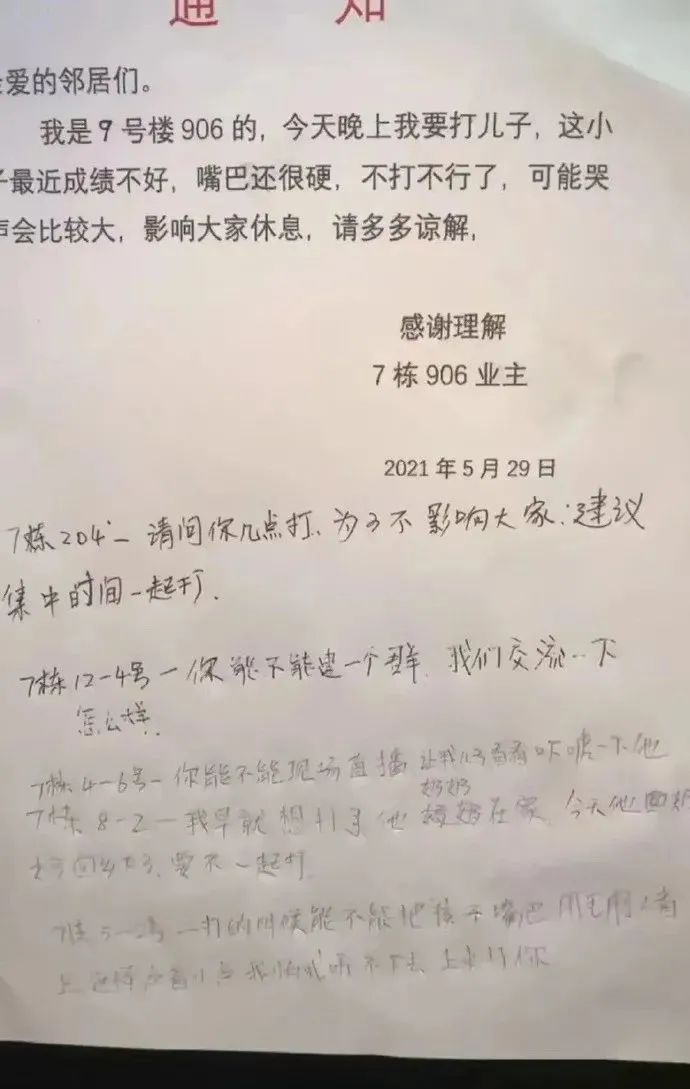 通 知
爱的邻居们。
我是9号楼906的，今天晚上我要打儿子，这小
子最近成绩不好，嘴巴还很硬，不打不行了，可能哭
声会比较大，影响大家休息，请多多谅解，
感谢理解
7栋906业主
2021年5月29日
7栋204一请问你几点打、为了不影响大家：建议
集中时间一起打.
7栋12-4号一你能不能建一个群，我们交流一下
怎么样.
7栋4-6号一你能不能现场直播 让我儿子看看吓唬一下他
奶奶
7栋8-2一我早就想打了 他 在家，今天他
回乡下了，要不一起打.
7栋 号一打的时候能不能把孩子嘴巴用毛
上 这样声音小点 我怕我听不下去 上来打你